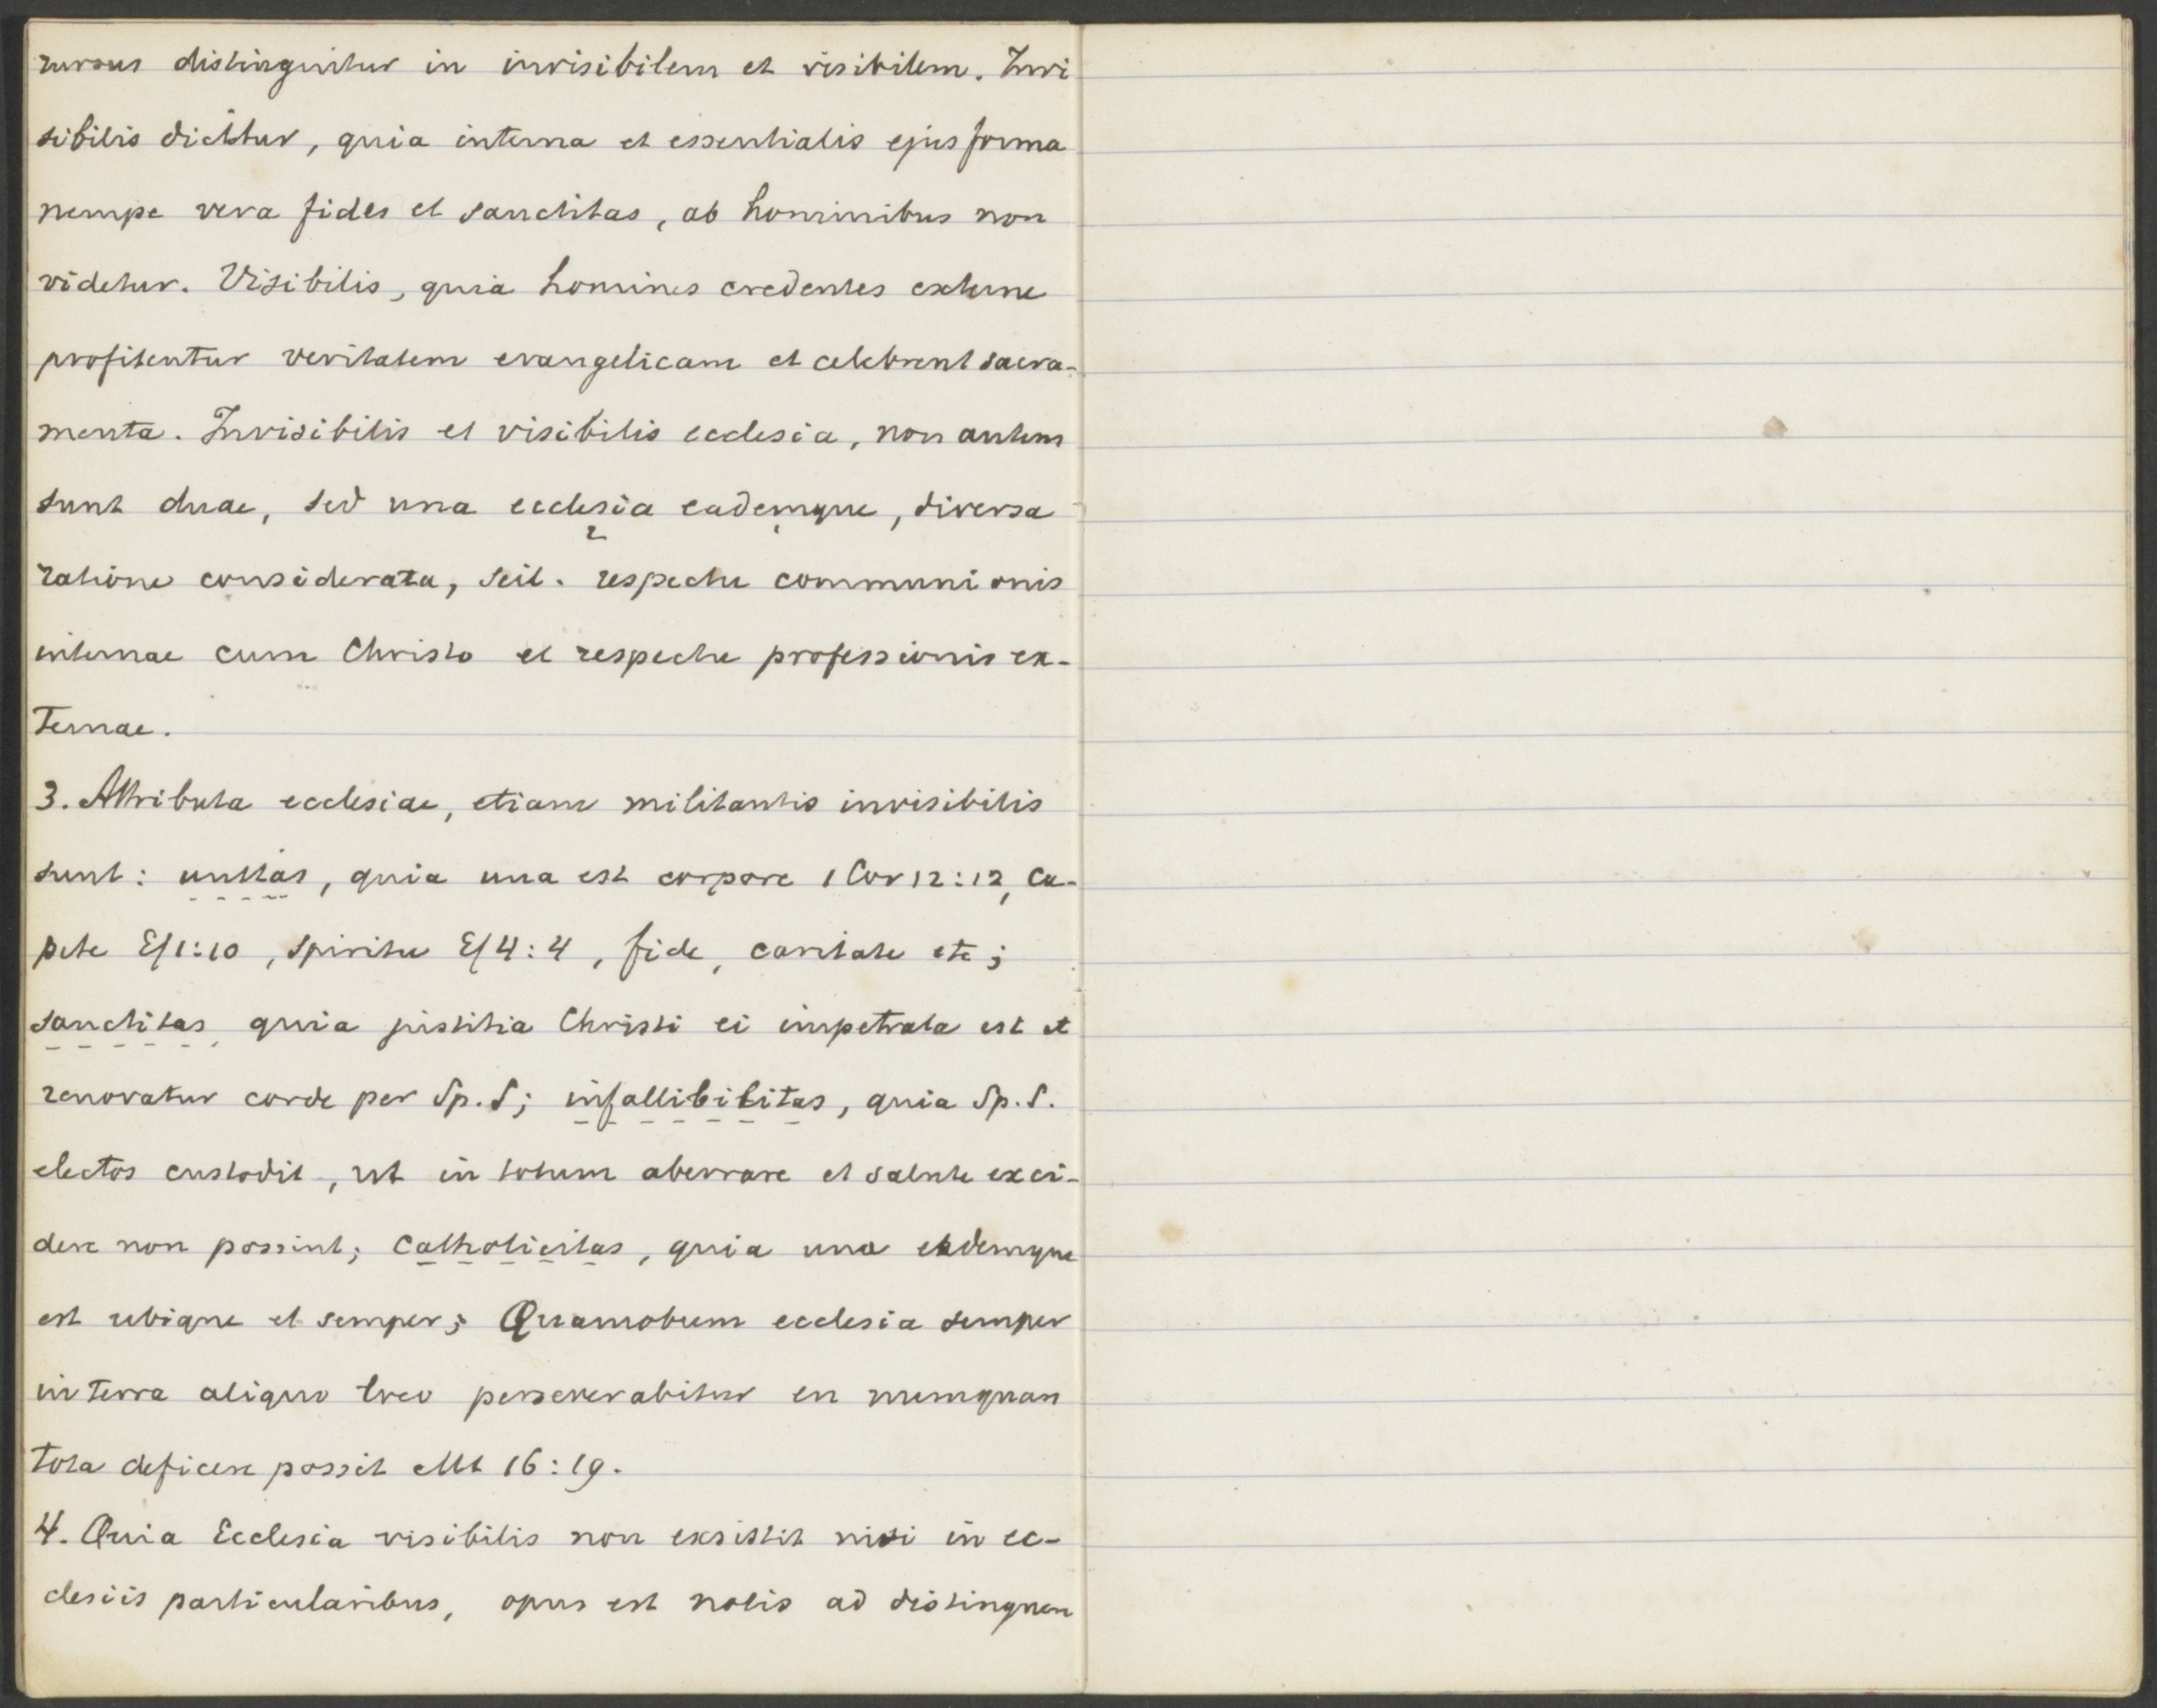 rursus distinguitur in invisibilem et visibilem. Invi
sibilis dicitur, quia interna et essentialis ejus forma
nempe vera fides et sanctitas, ab hominibus non
videtur. Visibilis, quia homines credentes externe
profitentur veritatem evangelicam et celebrent sacra-
menta. Invisibilis et visibilis ecclesia, non autem
sunt duae, sed una ecclesia eademque, diversa
ratione considerata, scil. respectu communionis
internae cum Christo et respectu professionis ex-
ternae.
3. Attributa ecclesiae, etiam militantis invisibilis
sunt: unitas, quia una est corpore 1 Cor 12:12, ca-
pite Ef 1:10, spiritu Ef 4:4, fide, caritate etc;
sanctitas, quia justitia Christi ei impetrata est et
renovatur corde per Sp. S; infallibilitas, quia Sp. S.
electos custodit, ut in totum aberrare et salute exci-
dere non possint; catholicitas, quia una eademque
est ubique et semper; Quamobrem ecclesia semper
in terra aliquo loco perseverabitur en numquam
tota deficere possit Mt 16:19.
4. Quia Ecclesia visibilis non exsistit nisi in ec-
clesiis particularibus, opus est notis ad distinguen